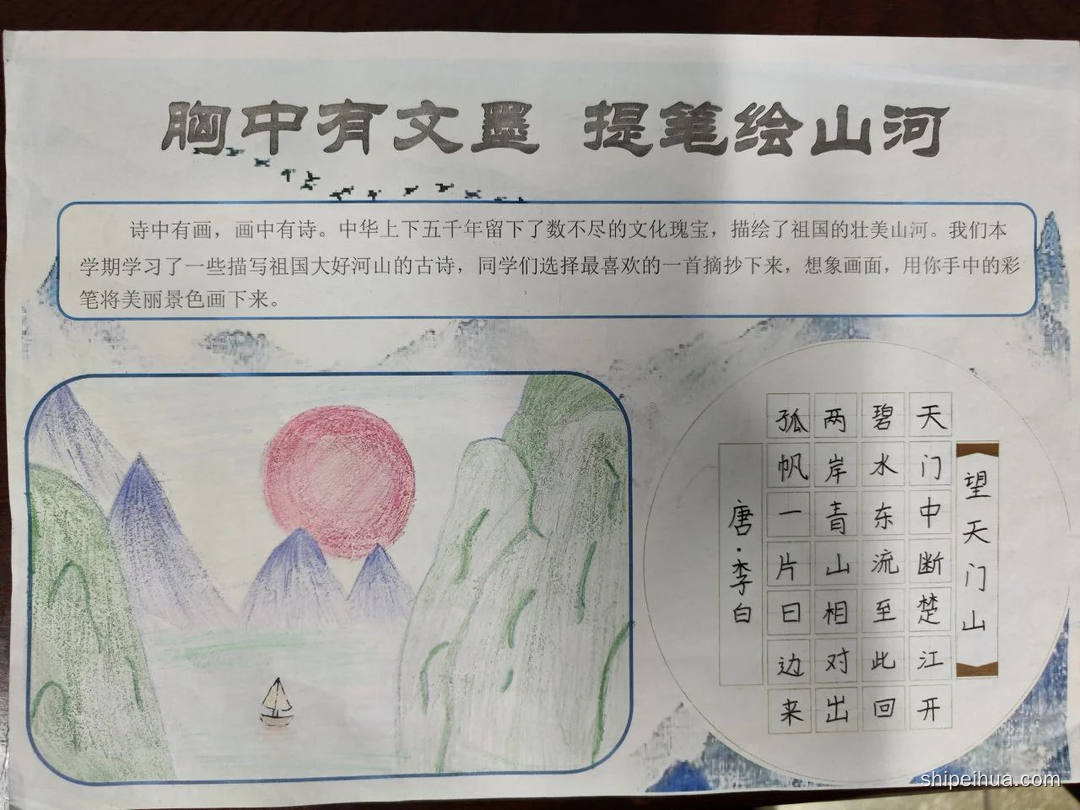 胸中有文墨 提笔绘山河
诗中有画，画中有诗。中华上下五千年留下了数不尽的文化瑰宝，描绘了祖国的壮美山河。我们本
学期学习了一些描写祖国大好河山的古诗，同学们选择最喜欢的一首摘抄下来，想象画面，用你手中的彩
笔将美丽景色画下来。
望天门山
天门中断楚江开
碧水东流至此回
两岸青山相对出
孤帆一片日边来
唐·李白
shipeihua.com